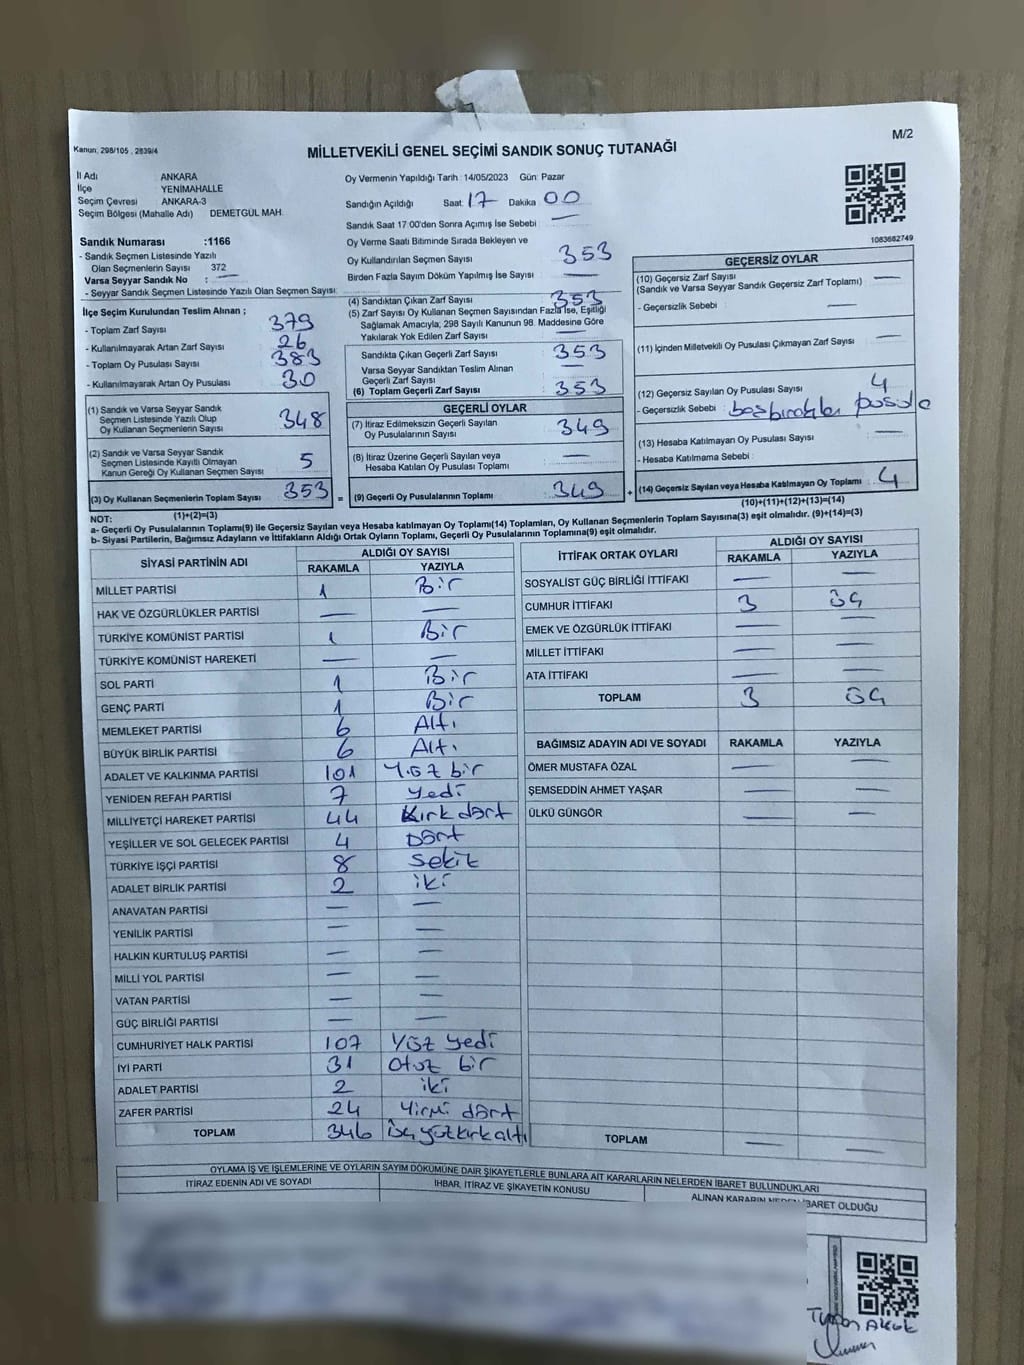 M/2
Kanun; 298/105 , 2839/4
MİLLETVEKİLİ GENEL SEÇİMİ SANDIK SONUÇ TUTANAĞI
İl Adı ANKARA
İlçe YENİMAHALLE
Seçim Çevresi ANKARA-3
Seçim Bölgesi (Mahalle Adı) DEMETGÜL MAH.
Sandık Numarası :1166
- Sandık Seçmen Listesinde Yazılı
Olan Seçmenlerin Sayısı 372
Varsa Seyyar Sandık No : —
- Seyyar Sandık Seçmen Listesinde Yazılı Olan Seçmen Sayısı:
İlçe Seçim Kurulundan Teslim Alınan ;
- Toplam Zarf Sayısı : 379
- Kullanılmayarak Artan Zarf Sayısı : 26
- Toplam Oy Pusulası Sayısı : 383
- Kullanılmayarak Artan Oy Pusulası : 30
(1) Sandık ve Varsa Seyyar Sandık
Seçmen Listesinde Yazılı Olup
Oy Kullanan Seçmenlerin Sayısı : 348
(2) Sandık ve Varsa Seyyar Sandık
Seçmen Listesinde Kayıtlı Olmayan
Kanun Gereği Oy Kullanan Seçmen Sayısı : 5
(3) Oy Kullanan Seçmenlerin Toplam Sayısı : 353
(1)+(2)=(3)
Oy Vermenin Yapıldığı Tarih : 14/05/2023 Gün: Pazar
Sandığın Açıldığı Saat: 17 Dakika 00
Sandık Saat 17.00'den Sonra Açımış İse Sebebi : —
Oy Verme Saati Bitiminde Sırada Bekleyen ve
Oy Kullandırılan Seçmen Sayısı : 353
Birden Fazla Sayım Döküm Yapılmış İse Sayısı : —
(4) Sandıktan Çıkan Zarf Sayısı : 353
(5) Zarf Sayısı Oy Kullanan Seçmen Sayısından Fazla İse, Eşitliği
Sağlamak Amacıyla, 298 Sayılı Kanunun 98. Maddesine Göre
Yakılarak Yok Edilen Zarf Sayısı : —
Sandıkta Çıkan Geçerli Zarf Sayısı : 353
Varsa Seyyar Sandıktan Teslim Alınan
Geçerli Zarf Sayısı : —
(6) Toplam Geçerli Zarf Sayısı : 353
GEÇERLİ OYLAR
(7) İtiraz Edilmeksizin Geçerli Sayılan
Oy Pusulalarının Sayısı : 349
(8) İtiraz Üzerine Geçerli Sayılan veya
Hesaba Katılan Oy Pusulası Toplamı : —
= (9) Geçerli Oy Pusulalarının Toplamı : 349
1083682749
GEÇERSİZ OYLAR
(10) Geçersiz Zarf Sayısı : —
(Sandık ve Varsa Seyyar Sandık Geçersiz Zarf Toplamı)
- Geçersizlik Sebebi : —
(11) İçinden Milletvekili Oy Pusulası Çıkmayan Zarf Sayısı : —
(12) Geçersiz Sayılan Oy Pusulası Sayısı : 4
- Geçersizlik Sebebi : boş bırakılan pusula
(13) Hesaba Katılmayan Oy Pusulası Sayısı : —
- Hesaba Katılmama Sebebi :
+ (14) Geçersiz Sayılan veya Hesaba Katılmayan Oy Toplamı : 4
(10)+(11)+(12)+(13)=(14)
NOT:
a- Geçerli Oy Pusulalarının Toplamı(9) ile Geçersiz Sayılan veya Hesaba katılmayan Oy Toplamı(14) Toplamları, Oy Kullanan Seçmenlerin Toplam Sayısına(3) eşit olmalıdır. (9)+(14)=(3)
b- Siyasi Partilerin, Bağımsız Adayların ve İttifakların Aldığı Ortak Oyların Toplamı, Geçerli Oy Pusulalarının Toplamına(9) eşit olmalıdır.
SİYASİ PARTİNİN ADI ALDIĞI OY SAYISI
RAKAMLA YAZIYLA
MİLLET PARTİSİ 1 Bir
HAK VE ÖZGÜRLÜKLER PARTİSİ — —
TÜRKİYE KOMÜNİST PARTİSİ 1 Bir
TÜRKİYE KOMÜNİST HAREKETİ — —
SOL PARTİ 1 Bir
GENÇ PARTİ 1 Bir
MEMLEKET PARTİSİ 6 Altı
BÜYÜK BİRLİK PARTİSİ 6 Altı
ADALET VE KALKINMA PARTİSİ 101 Yüz bir
YENİDEN REFAH PARTİSİ 7 Yedi
MİLLİYETÇİ HAREKET PARTİSİ 44 Kırk dört
YEŞİLLER VE SOL GELECEK PARTİSİ 4 Dört
TÜRKİYE İŞÇİ PARTİSİ 8 Sekiz
ADALET BİRLİK PARTİSİ 2 iki
ANAVATAN PARTİSİ — —
YENİLİK PARTİSİ — —
HALKIN KURTULUŞ PARTİSİ — —
MİLLİ YOL PARTİSİ — —
VATAN PARTİSİ — —
GÜÇ BİRLİĞİ PARTİSİ — —
CUMHURİYET HALK PARTİSİ 107 Yüz yedi
İYİ PARTİ 31 Otuz bir
ADALET PARTİSİ 2 iki
ZAFER PARTİSİ 24 Yirmi dört
TOPLAM 346 üçyüzkırkaltı
İTTİFAK ORTAK OYLARI ALDIĞI OY SAYISI
RAKAMLA YAZIYLA
SOSYALİST GÜÇ BİRLİĞİ İTTİFAKI — —
CUMHUR İTTİFAKI 3 üç
EMEK VE ÖZGÜRLÜK İTTİFAKI — —
MİLLET İTTİFAKI — —
ATA İTTİFAKI — —
TOPLAM 3 üç
BAĞIMSIZ ADAYIN ADI VE SOYADI RAKAMLA YAZIYLA
ÖMER MUSTAFA ÖZAL — —
ŞEMSEDDİN AHMET YAŞAR — —
ÜLKÜ GÜNGÖR — —
TOPLAM — —
OYLAMA İŞ VE İŞLEMLERİNE VE OYLARIN SAYIM DÖKÜMÜNE DAİR ŞİKAYETLERLE BUNLARA AİT KARARLARIN NELERDEN İBARET BULUNDUKLARI
İTİRAZ EDENİN ADI VE SOYADI İHBAR, İTİRAZ VE ŞİKAYETİN KONUSU ALINAN KARARIN NEDEN İBARET OLDUĞU